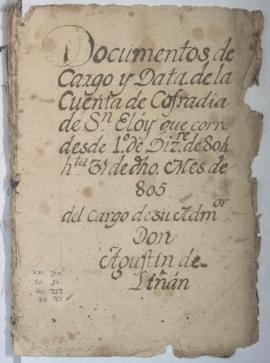 Documentos de
Cargo y Data de la
Cuenta de Cofradia
de Sn. Eloy que corre
desde 1º. de Dizre. de 804
hta 31 de dho. Mes de
805
del cargo de su Admor
Don
Agustin de
Liñán